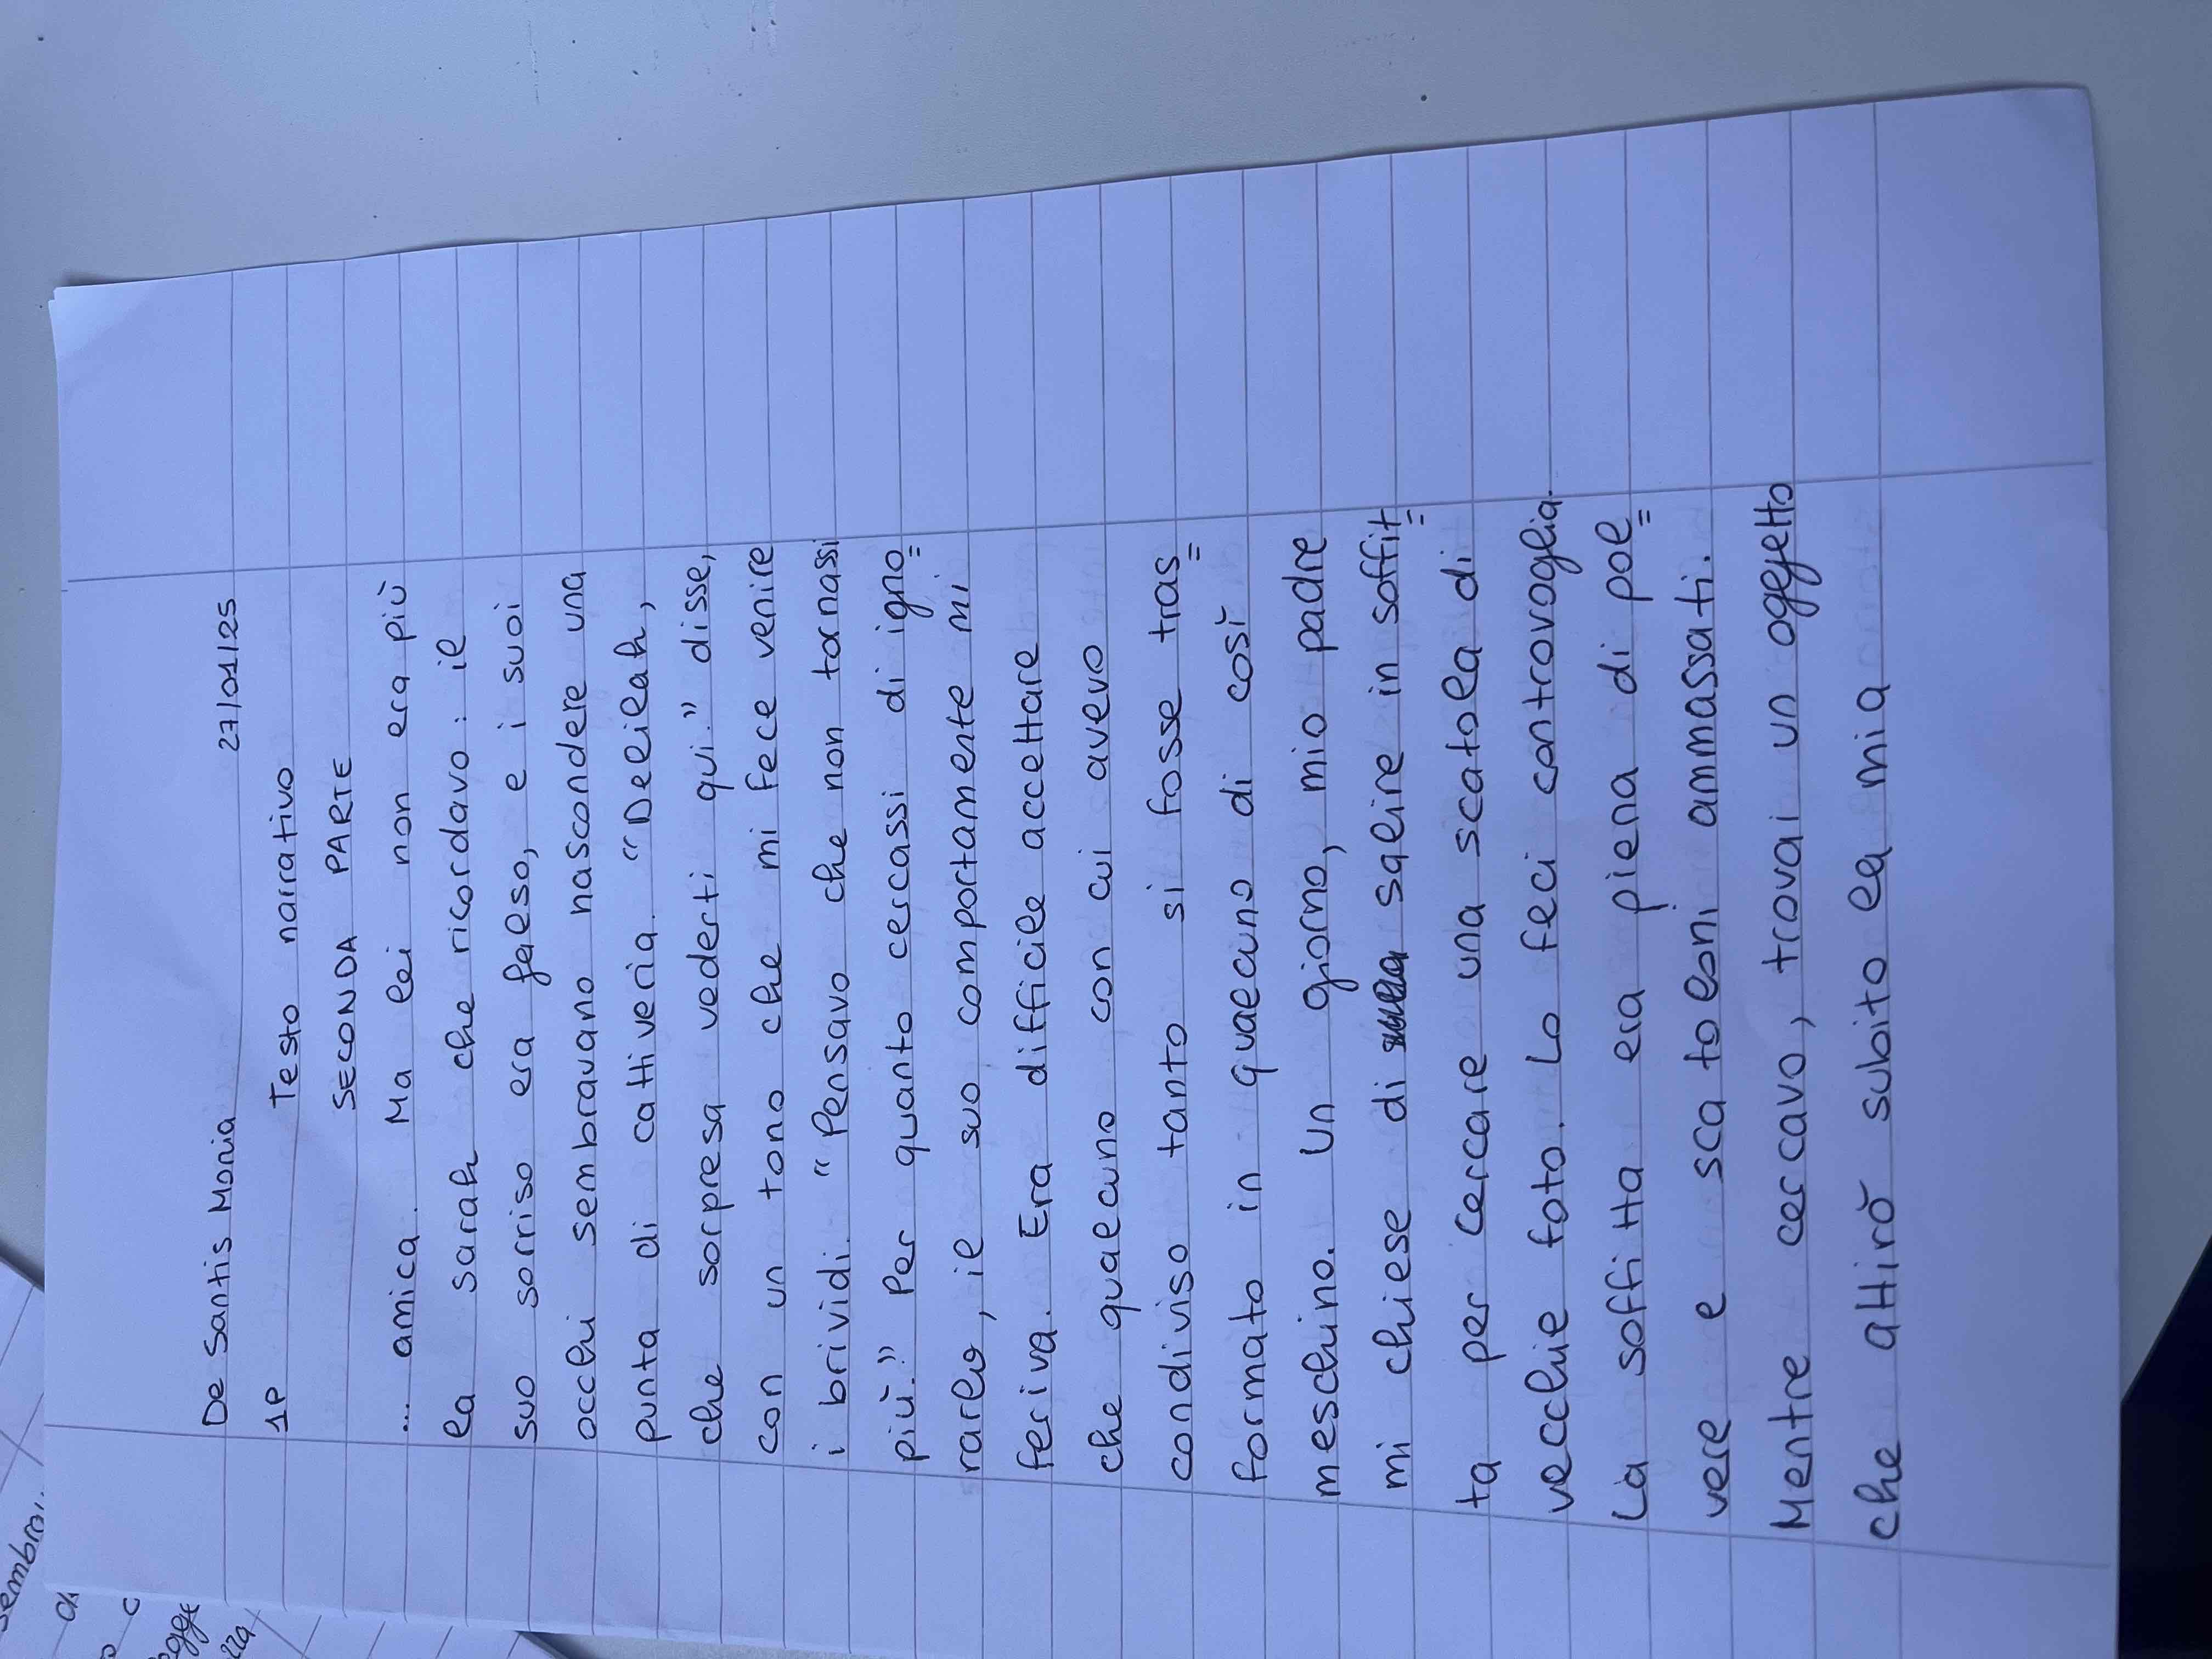 sembrav
De Santis Monia 27/01/25
1P Testo narrativo
SECONDA PARTE
... amica. Ma lei non era più
la sarah che ricordavo: il
suo sorriso era falso, e i suoi
occhi sembravano nascondere una
punta di cattiveria. "Delilah,
che sorpresa vederti qui." disse,
con un tono che mi fece venire
i brividi. "Pensavo che non tornassi
più." Per quanto cercassi di igno=
rarlo, il suo comportamente mi
feriva. Era difficile accettare
che qualcuno con cui avevo
condiviso tanto si fosse tras=
formato in qualcuno di così
meschino. Un giorno, mio padre
mi chiese di salire in soffit=
ta per cercare una scatola di
vecchie foto. Lo feci controvoglia.
La soffitta era piena di pol=
vere e scatoloni ammassati.
Mentre cercavo, trovai un oggetto
che attirò subito la mia